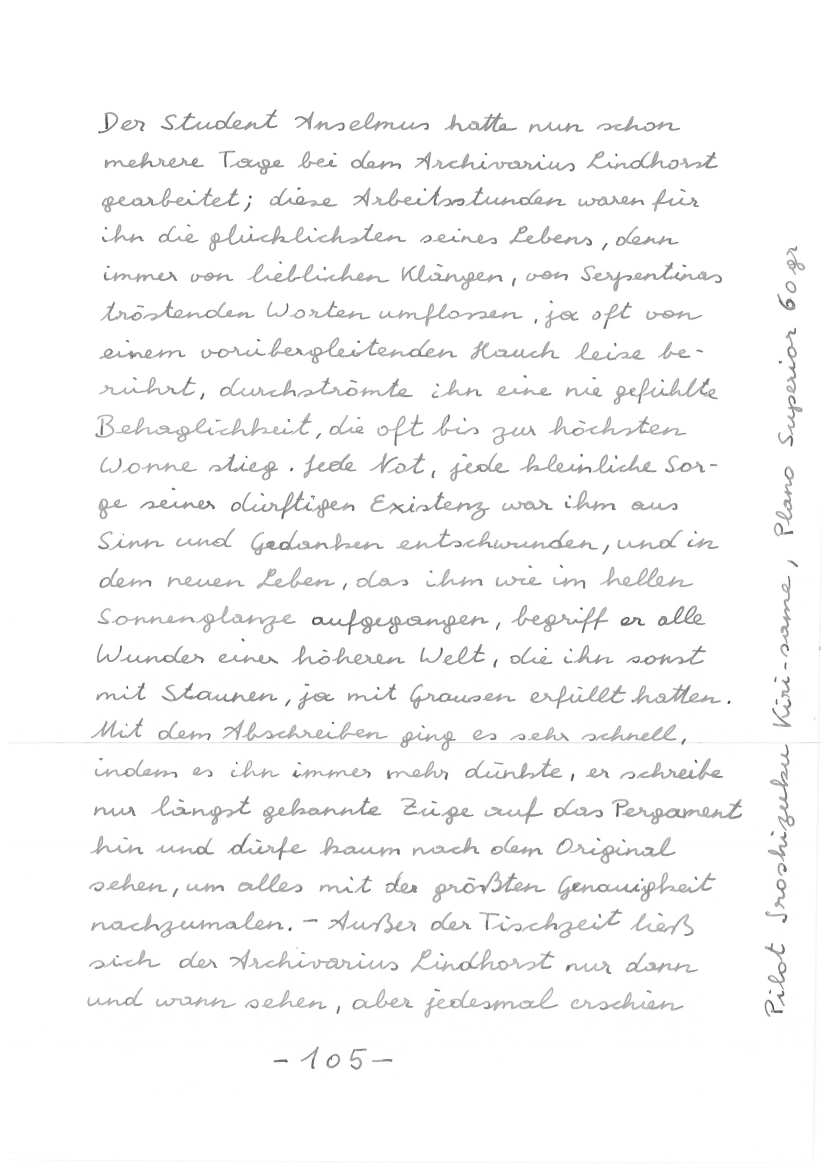 Der Student Anselmus hatte nun schon
mehrere Tage bei dem Archivarius Lindhorst
gearbeitet; diese Arbeitsstunden waren für
ihn die glücklichsten seines Lebens, denn
immer von lieblichen Klängen, von Serpentinas
tröstenden Worten umflossen, ja oft von
einem vorübergleitenden Hauch leise be-
rührt, durchströmte ihn eine nie gefühlte
Behaglichkeit, die oft bis zur höchsten
Wonne stieg. Jede Not, jede kleinliche Sor-
ge seiner dürftigen Existenz war ihm aus
Sinn und Gedanken entschwunden, und in
dem neuen Leben, das ihm wie im hellen
Sonnenglanze aufgegangen, begriff er alle
Wunder einer höheren Welt, die ihn sonst
mit Staunen, ja mit Grausen erfüllt hatten.
Mit dem Abschreiben ging es sehr schnell,
indem es ihn immer mehr dünkte, er schreibe
nur längst gekannte Züge auf das Pergament
hin und dürfe kaum nach dem Original
sehen, um alles mit der größten Genauigkeit
nachzumalen. – Außer der Tischzeit ließ
sich der Archivarius Lindhorst nur dann
und wann sehen, aber jedesmal erschien
- 105 -
Pilot Iroshizuku Kiri-same, Plano Superior 60 gr